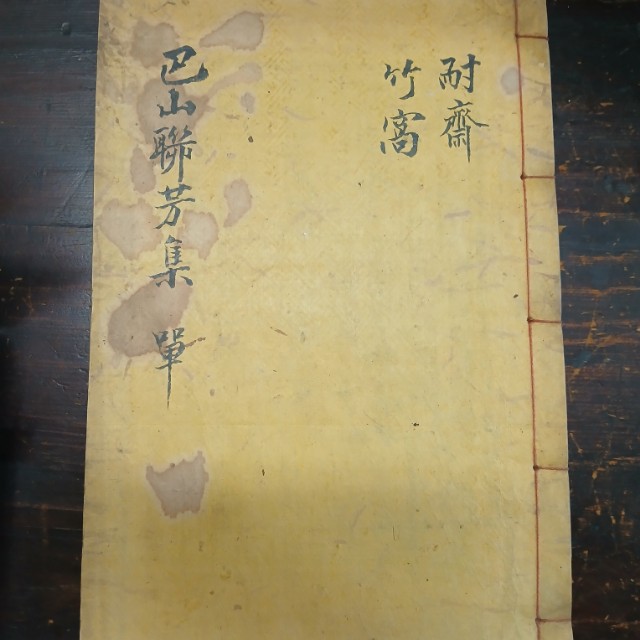 耐齋
竹窩
巴山聯芳集 單